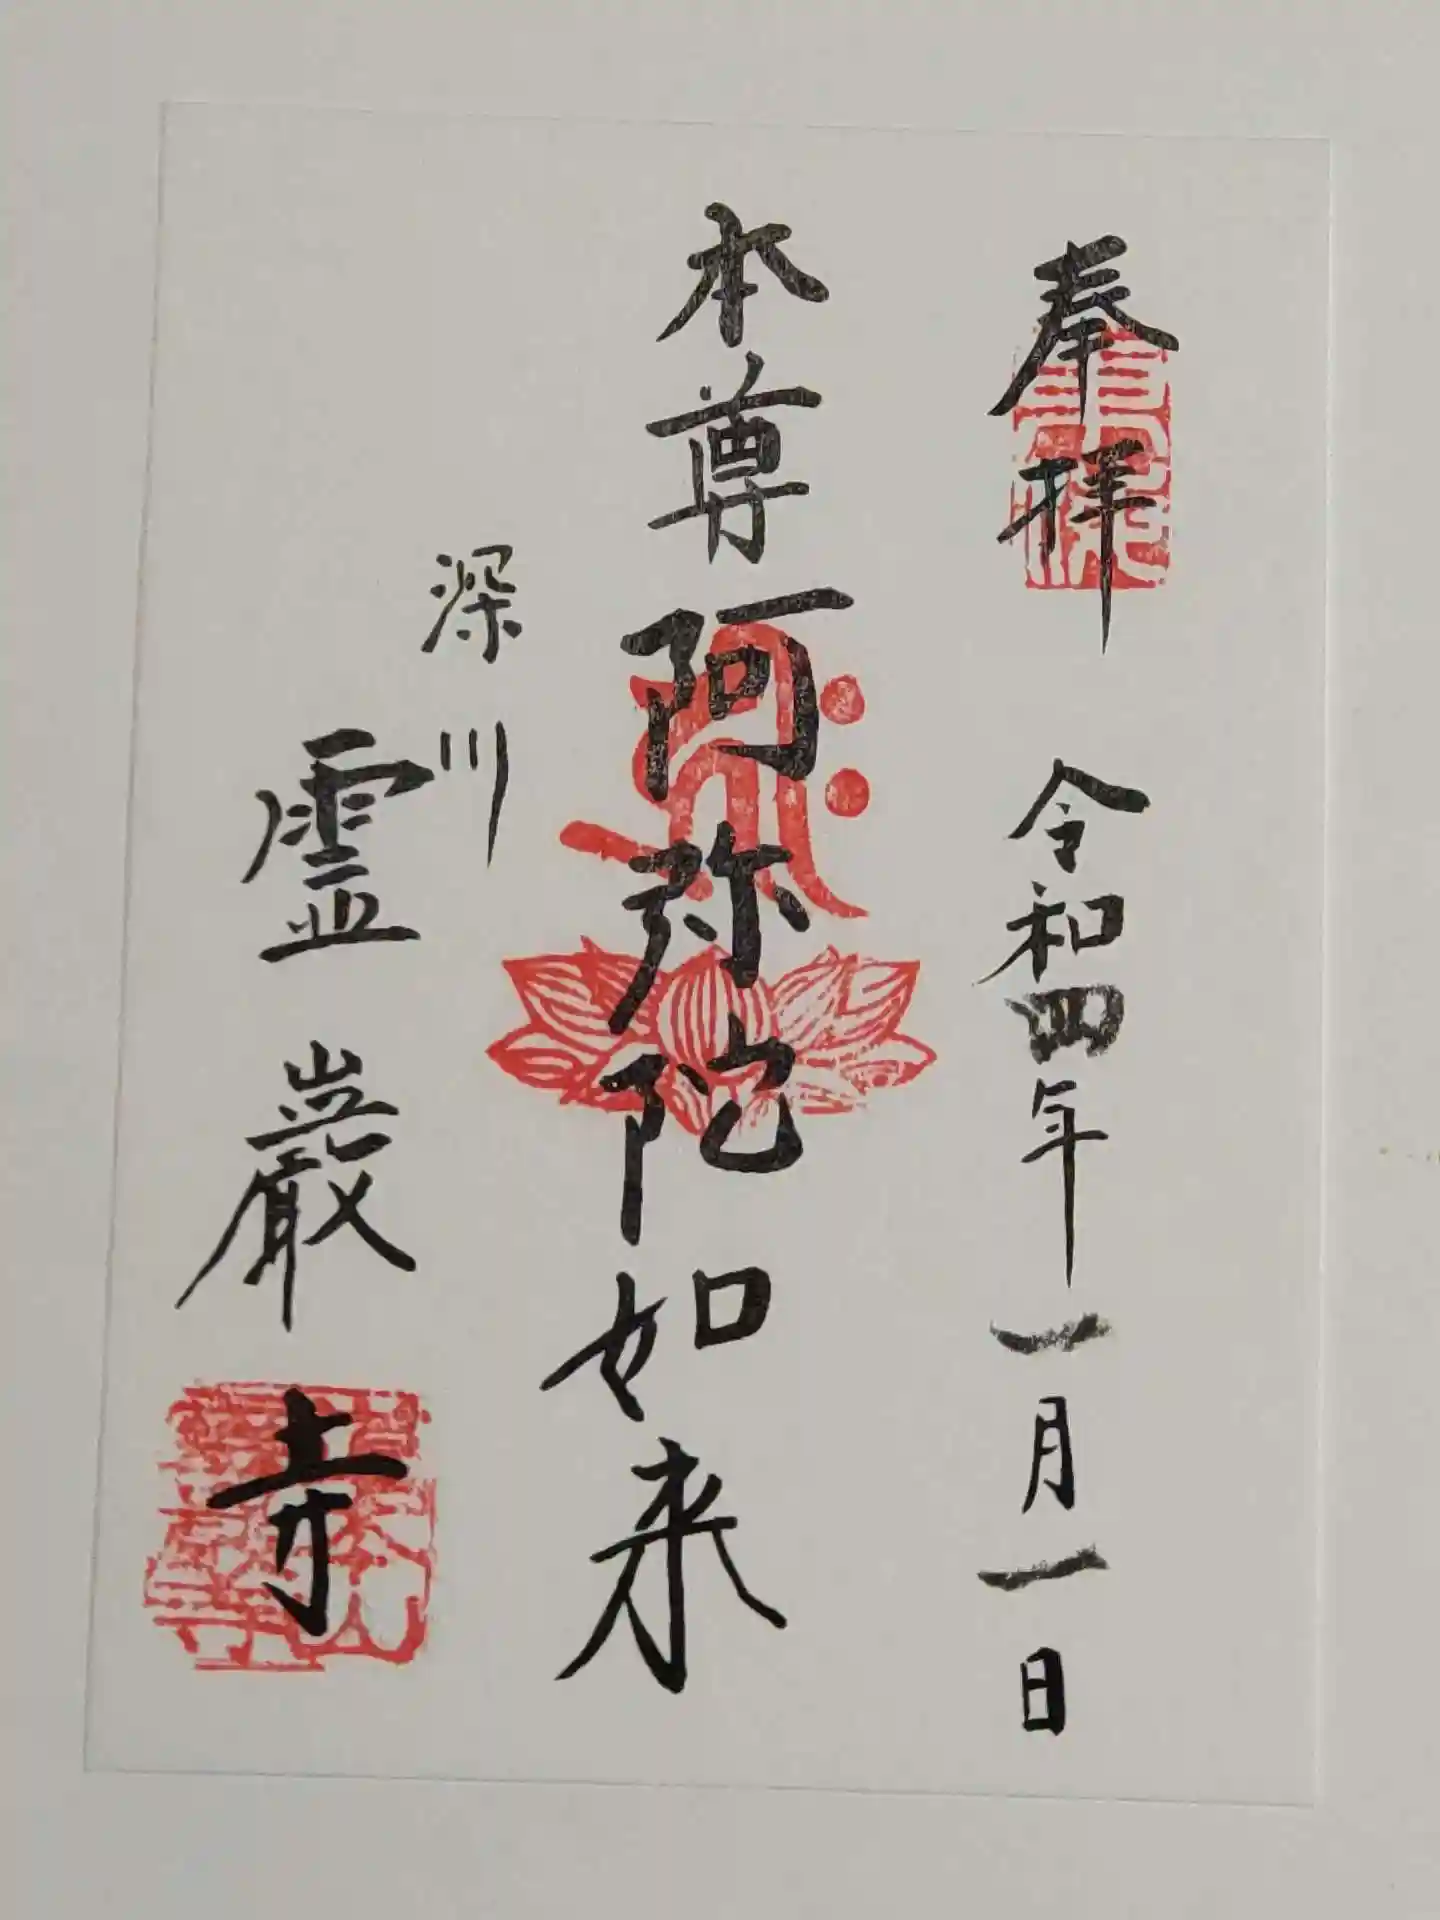 奉拝 令和四年一月一日
本尊阿弥陀如来
深川
霊巖寺